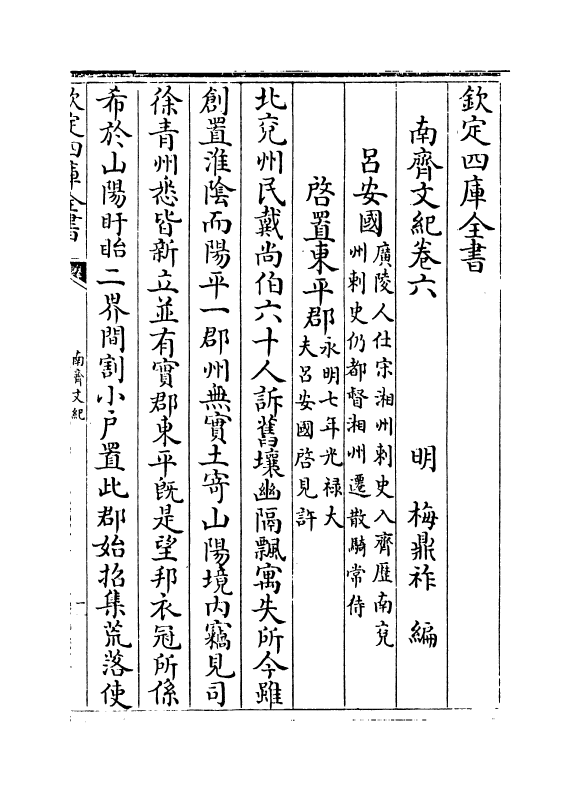 欽定四庫全書
南齊文紀卷六
明 梅鼎祚 編
呂安國廣陵人仕宋湘州刺史入齊歷南兗
州刺史仍都督湘州遷散騎常侍
啓置東平郡永明七年光禄大
夫呂安國啓見許
北兗州民戴尚伯六十人訴舊壤幽隔飄寓失所今雖
創置淮陰而陽平一郡州無實土寄山陽境内竊見司
徐青州悉皆新立並有實郡東平旣是望邦衣冠所係
希於山陽盱眙二界間割小戶置此郡始招集荒落使
欽定四庫全書
南齊文紀
一